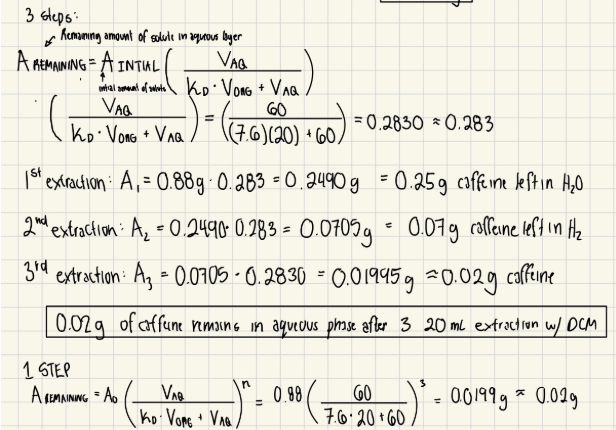 3 steps:
Remaining amount of solute in aqueous layer
A REMAINING = A INTIAL ( VAQ / KD · VORG + VAQ )
intial amount of solute
( VAQ / KD · VORG + VAQ ) = ( 60 / (7.6)(20) + 60 ) = 0.2830 ≈ 0.283
1st extraction: A1 = 0.88g · 0.283 = 0.2490 g = 0.25g caffeine left in H2O
2nd extraction: A2 = 0.2490 · 0.283 = 0.0705g = 0.07g caffeine left in H2
3rd extraction: A3 = 0.0705 · 0.2830 = 0.01995g ≈ 0.02g caffeine
0.02g of caffeine remains in aqueous phase after 3 20 mL extraction w/ DCM
1 STEP
A REMAINING = A0 ( VAQ / KD · VORG + VAQ )^n = 0.88 ( 60 / 7.6 · 20 + 60 )^3 = 0.0199g ≈ 0.02g